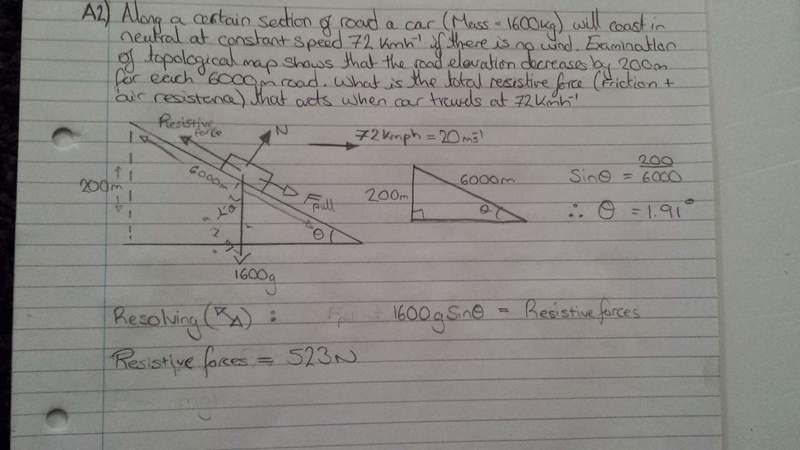 A2) Along a certain section of road a car (Mass = 1600kg) will coast in
neutral at constant speed 72 Kmh⁻¹ if there is no wind. Examination
of topological map shows that the road elevation decreases by 200m
for each 6000m road. What is the total resistive force (friction +
air resistence) that acts when car travels at 72Kmh⁻¹
Resistive
force
N
72Kmph = 20ms⁻¹
200m
6000m
F pull
θ
1600g
200m
6000m
θ
Sinθ = 200/6000
∴ θ = 1.91°
Resolving ( ) : 1600gSinθ = Resistive forces
Resistive forces = 523N